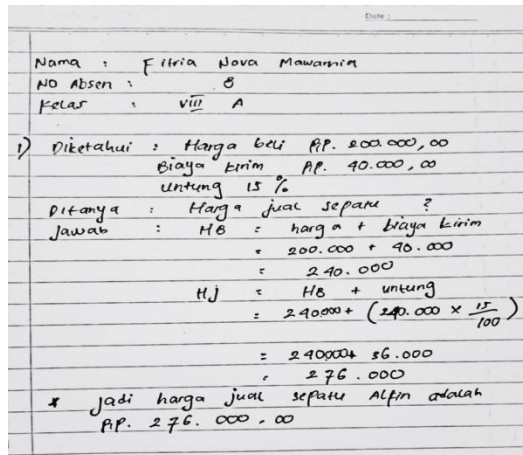 Date :
Nama : Fitria Nova Mawarnia
NO Absen : 8
Kelas : VIII A
1) Diketahui : Harga beli Rp. 200.000,00
Biaya kirim Rp. 40.000,00
Untung 15 %
Ditanya : Harga jual sepatu ?
Jawab : HB = harga + biaya kirim
= 200.000 + 40.000
= 240.000
HJ = HB + untung
= 240000 + (240.000 x 15/100)
= 240000 + 36.000
= 276.000
* jadi harga jual sepatu Alfin adalah
Rp. 276.000,00